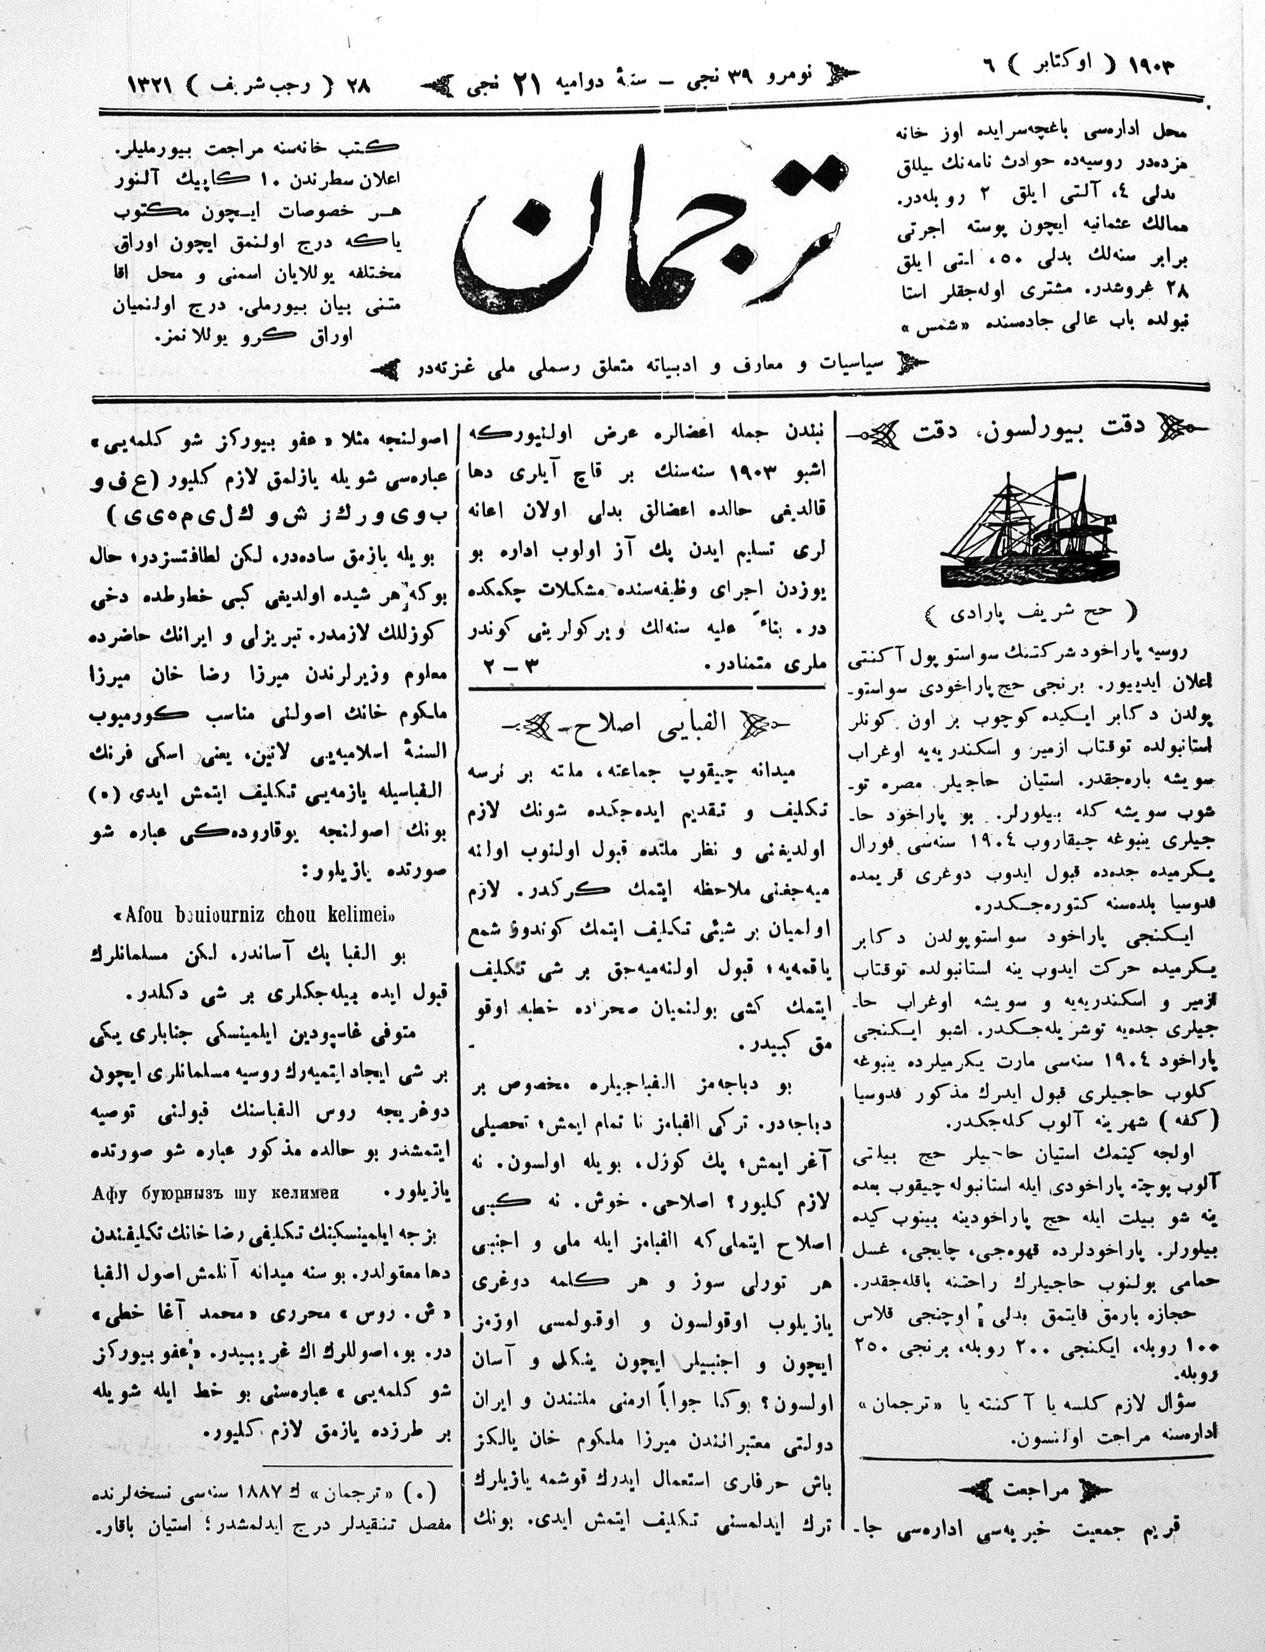 ١٩٠٣ ( اوكتابر ) ٦
نومرو ٣٩ نجى ـ سنهٔ دواميه ٢١ نجى
٢٨ ( رجب شريف ) ١٣٢١
محل اداره‌سى باغچه‌سرايده اوز خانه
مزده‌در روسيه‌ده حوادث نامه‌نك ييللق
بدلى ٤، آلتى ايلق ٢ روبله‌در.
ممالك عثمانيه ايچون پوسته اجرتى
برابر سنه‌لك بدلى ٥٠، التى ايلق
٢٨ غروشدر. مشترى اوله‌جقلر استا
نبولده باب عالى جاده‌سنده «شمس»
ترجمان
كتب خانه‌سنه مراجعت بيورمليلر.
اعلان سطرندن ١٠ كاپيك آلنور
هر خصوصات ايچون مكتوب
ياكه درج اولنمق ايچون اوراق
مختلفه يوللايان اسمنى و محل اقا
متنى بيان بيورملى. درج اولنميان
اوراق كرو يوللانمز.
سياسيات و معارف و ادبياته متعلق رسملى ملى غزته‌در
دقت بيورلسون، دقت
( حج شريف پارادى )
روسيه پاراخود شركتنك سواستوپول آكنتى
اعلان ايدييور. برنجى حج پاراخودى سواستو-
پولدن دكابر ايكيده كوچوب بر اون كونلر
استانبولده توقتاب ازمير و اسكندريه‌يه اوغراب
سويشه باره‌جقدر. استيان حاجيلر مصره تو-
شوب سويشه كله بيلورلر. بو پاراخود حا-
جيلرى ينبوغه چيقاروب ١٩٠٤ سنه‌سى فورال
يكرميده جدده قبول ايدوب دوغرى قريمده
فدوسيا بلده‌سنه كتوره‌جكدر.
ايكنجى پاراخود سواستوپولدن دكابر
يكرميده حركت ايدوب ينه استانبولده توقتاب
ازمير و اسكندريه‌يه و سويشه اوغراب حا-
جيلرى جده‌يه توشريله‌جكدر. اشبو ايكنجى
پاراخود ١٩٠٤ سنه‌سى مارت يكرميلرده ينبوغه
كلوب حاجيلرى قبول ايدرك مذكور فدوسيا
( كفه ) شهرينه آلوب كله‌جكدر.
اولجه كيتمك استيان حاجيلر حج بيلتى
آلوب پوچته پاراخودى ايله استانبوله چيقوب بعده
ينه شو بيلت ايله حج پاراخودينه بينوب كيده
بيلورلر. پاراخودلرده قهوه‌جى، چايجى، غسل
حمامى بولنوب حاجيلرك راحتنه باقله‌جقدر.
حجازه بارمق قايتمق بدلى اوچنجى قلاس
١٠٠ روبله، ايكنجى ٢٠٠ روبله، برنجى ٢٥٠
روبله.
سؤال لازم كلسه يا آكنته يا «ترجمان»
اداره‌سنه مراجت اولنسون.
مراجعت
قريم جمعيت خيريه‌سى اداره‌سى جا-
نبندن جمله اعضالره عرض اولنيوركه
اشبو ١٩٠٣ سنه‌سنك بر قاچ آيلرى دها
قالديغى حالده اعضالق بدلى اولان اعانه
لرى تسليم ايدن پك آز اولوب اداره بو
يوزدن اجراى وظيفه‌سنده مشكلات چكمكده
در. بناءً عليه سنه‌لك ويركولرينى كوندر
ملرى متمنادر. ٣ ـ ٢
الفبايى اصلاح
ميدانه چيقوب جماعته، ملته بر نرسه
تكليف و تقديم ايده‌جكده شونك لازم
اولديغنى و نظر ملتده قبول اولنوب اولنه
ميه‌جغنى ملاحظه ايتمك كركدر. لازم
اولميان بر شيئى تكليف ايتمك كوندوز شمع
ياقمه‌يه؛ قبول اولنه‌ميه‌جق بر شى تكليف
ايتمك كشى بولنميان صحراده خطبه اوقو
مق كبيدر.
بو ديباجه‌مز الفباجيلره مخصوص بر
ديباجه‌در. تركى الفبامز نا تمام ايمش؛ تحصيلى
آغر ايمش؛ پك كوزل، بويله اولسون. نه
لازم كليور؟ اصلاحى. خوش. نه كيبى
اصلاح ايتملى‌كه الفبامز ايله ملى و اجنبى
هر تورلى سوز و هر كلمه دوغرى
يازيلوب اوقولسون و اوقولمسى اوزمز
ايچون و اجنبيلر ايچون ينكل و آسان
اولسون؟ بوكا جواباً ارمنى ملتندن و ايران
دولتى معتبرانندن ميرزا ملكوم خان يالكز
باش حرفلرى استعمال ايدرك قوشمه يازيلرك
ترك ايدلمسنى تكليف ايتمش ايدى. بونك
اصولنجه مثلا «عفو بيوركز شو كلمه‌يى»
عباره‌سى شويله يازلمق لازم كليور (ع ف و
ب و ى و ر ك ز ش و ك ل ى م ه ى ى)
بويله يازمق ساده‌در، لكن لطافتسزدر؛ حال
بوكه هر شيده اولديغى كبى خطرطده دخى
كوزللك لازمدر. تبريزلى و ايرانك حاضرده
معلوم وزيرلرندن ميرزا رضا خان ميرزا
ملكوم خانك اصولنى مناسب كورميوب
السنهٔ اسلاميه‌يى لاتين، يعنى اسكى فرنك
الفباسيله يازمه‌يى تكليف ايتمش ايدى (٠)
بونك اصولنجه يوقاروده‌كى عباره شو
صورتده يازيلور:
«Afou bouiourniz chou kelimei»
بو الفبا پك آساندر، لكن مسلمانلرك
قبول ايده بيله‌جكلرى بر شى دكلدر.
متوفى غاسپودين ايلمينسكى جنابلرى يكى
بر شى ايجاد ايتميه‌رك روسيه مسلمانلرى ايچون
دوغريجه روس الفباسنك قبولنى توصيه
ايتمشدر بو حالده مذكور عباره شو صورتده
يازيلور. Афу буюрнызъ шу келимеи
بزجه ايلمينسكينك تكليفى رضا خانك تكليفندن
دها معقولدر. بو سنه ميدانه آتلمش اصول الفبا
«ش. روس» محررى «محمد آغا خطى»
در. بو، اصوللرك اك غريبيدر. «عفو بيوركز
شو كلمه‌يى» عباره‌سنى بو خط ايله شويله
بر طرزده يازمق لازم كليور.
(٠) «ترجمان» ك ١٨٨٧ سنه‌سى نسخه‌لرنده
مفصل تنقيدلر درج ايدلمشدر؛ استيان باقار.